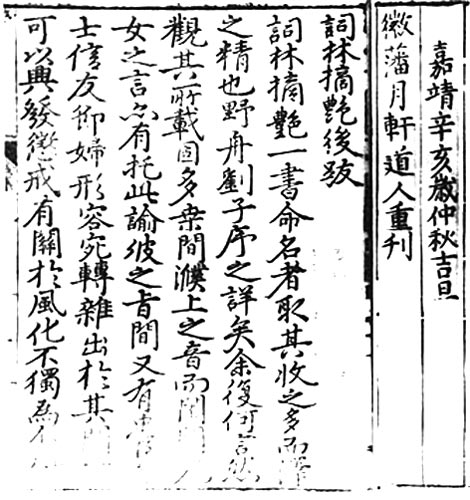 嘉靖辛亥歲仲秋吉旦
徽藩月軒道人重刊
詞林摘艷後跋
詞林摘艷一書命名者取其收之多而擇
之精也野舟劉子序之詳矣余復何言然
觀其所載固多桑間濮上之音而閨閣兒
女之言亦有托此諭彼之旨間又有忠臣
士信友節婦形容宛轉雜出於其間
可以興發懲戒有關於風化不獨為